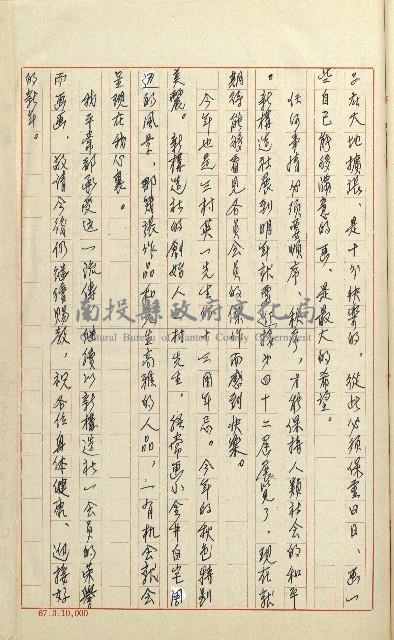 子在大地擴張、是十分快樂的，從此必須保重日目、画一
些自己能夠滿意的画、是最大的希望。
任何事情必須要順序、秩序，才能保持人類社會的和平
。新構造社展到明年就要迎接第四十二屆展覽了，現在就
期待能夠看見各員會員的傑作而感到快樂。
今年也是三村英一先生的十三周年忌。今年的秋色特別
美麗。新構造社的創始人三村先生，經常画小金井自宅周
迅的風景，那
作品和先生高雅的人品，一有机会就会
呈現在我心裏。
我平常都承受这一流傳、继續以新構造社一会員的荣譽
而画画、敬請今後仍継續賜教，祝各位身体健康、迎接好
的新年。
南投縣政府文化局
Cultural Bureau of Nantou County Government
67.3.10,000